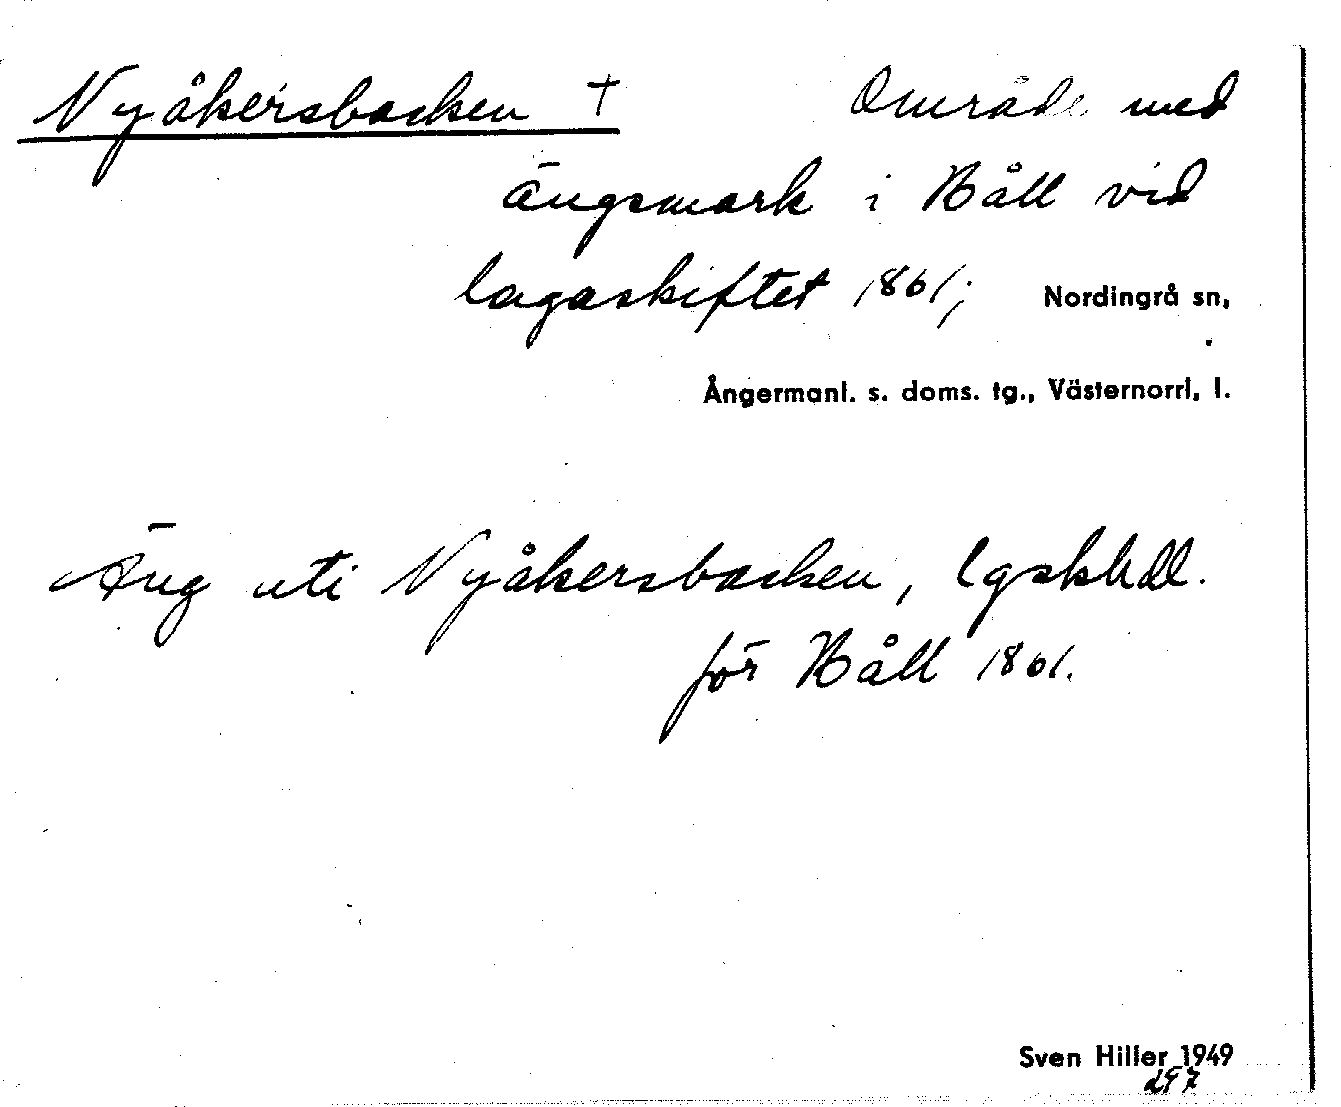 Nyåkersbacken † Område med
ängsmark i Båll vid
lagaskiftet 1861; Nordingrå sn,
Ångermanl. s. doms. tg., Västernorrl, l.
Äng uti Nyåkersbacken, lgskhdl.
för Båll 1861.
Sven Hiller 1949